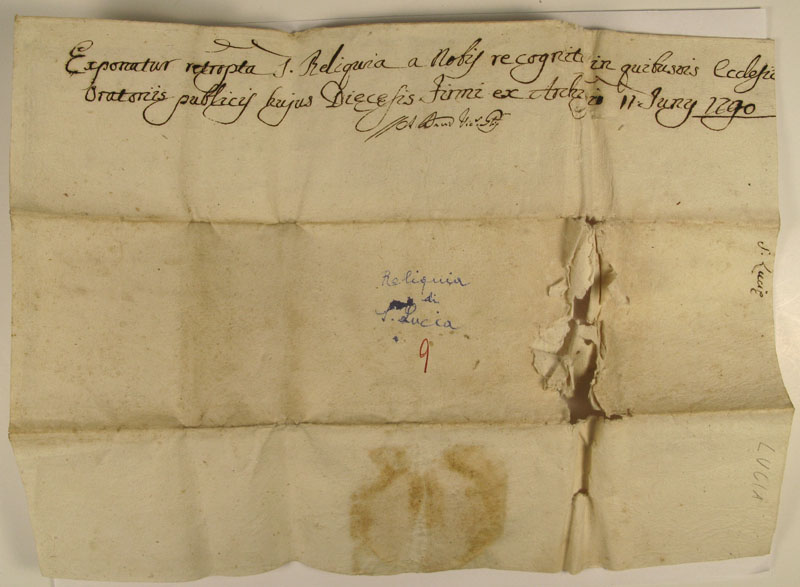 Exponatur retropta S. Reliquia a Nobis recognit in quibusvis Ecclesiis
Oratoriis publicis hujus Diecesis Firmi ex Archi 11 Juny 1790
Reliquia
di
S. Lucia
9
S. Lucię
LUCIA